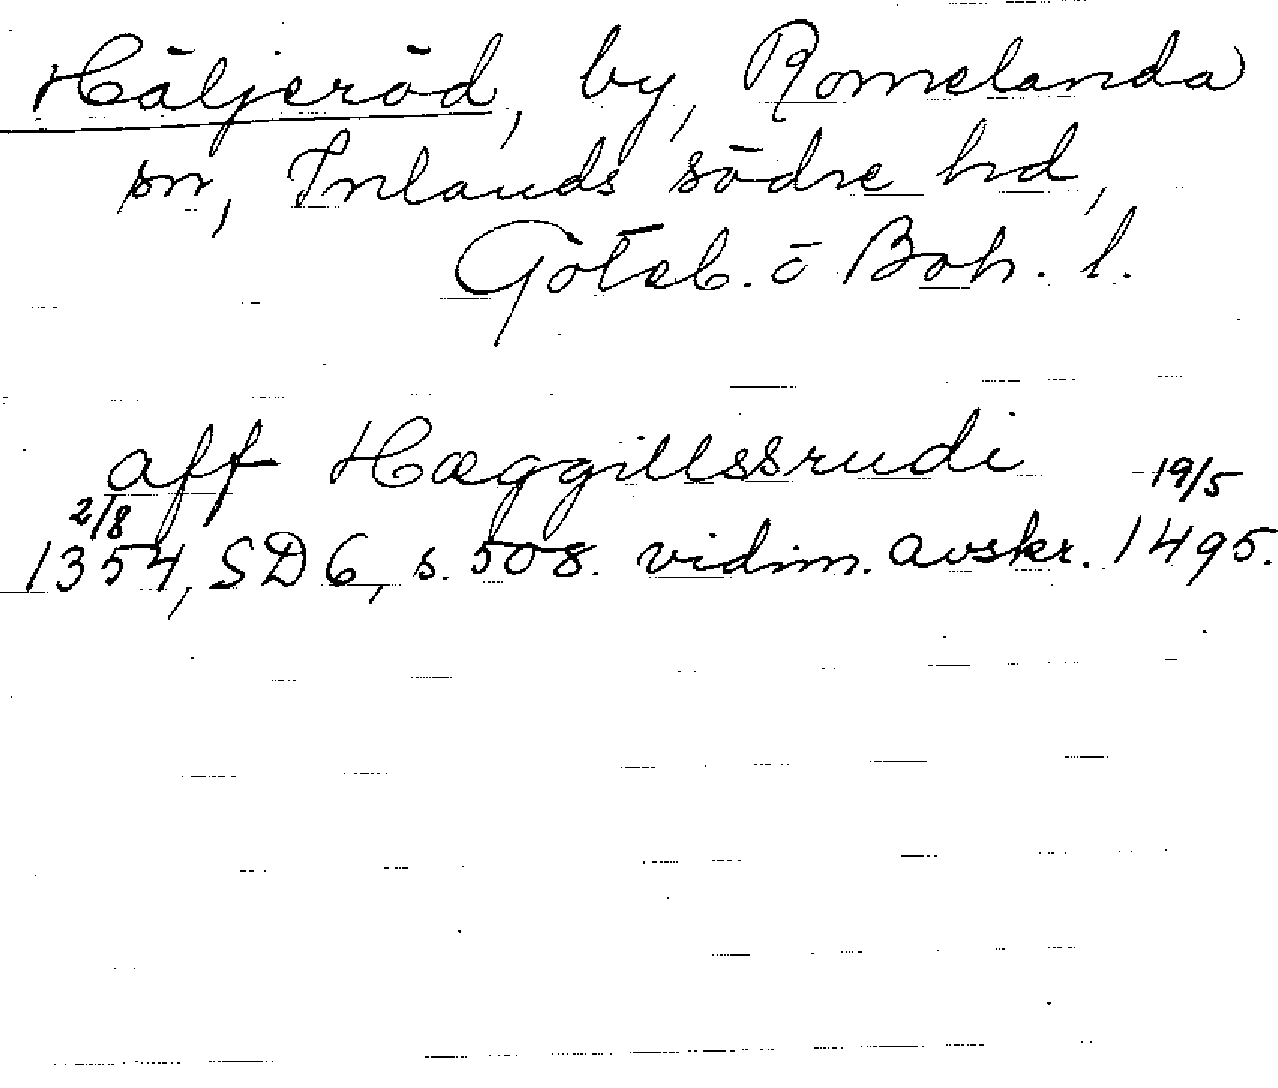 Häljeröd, by, Romelanda
sn, Inlands södre hd,
Göteb. o Boh. l.
aff Hæggillssrudi 19/5
2/8
1354, SD 6, s. 508. vidim. avskr. 1495.